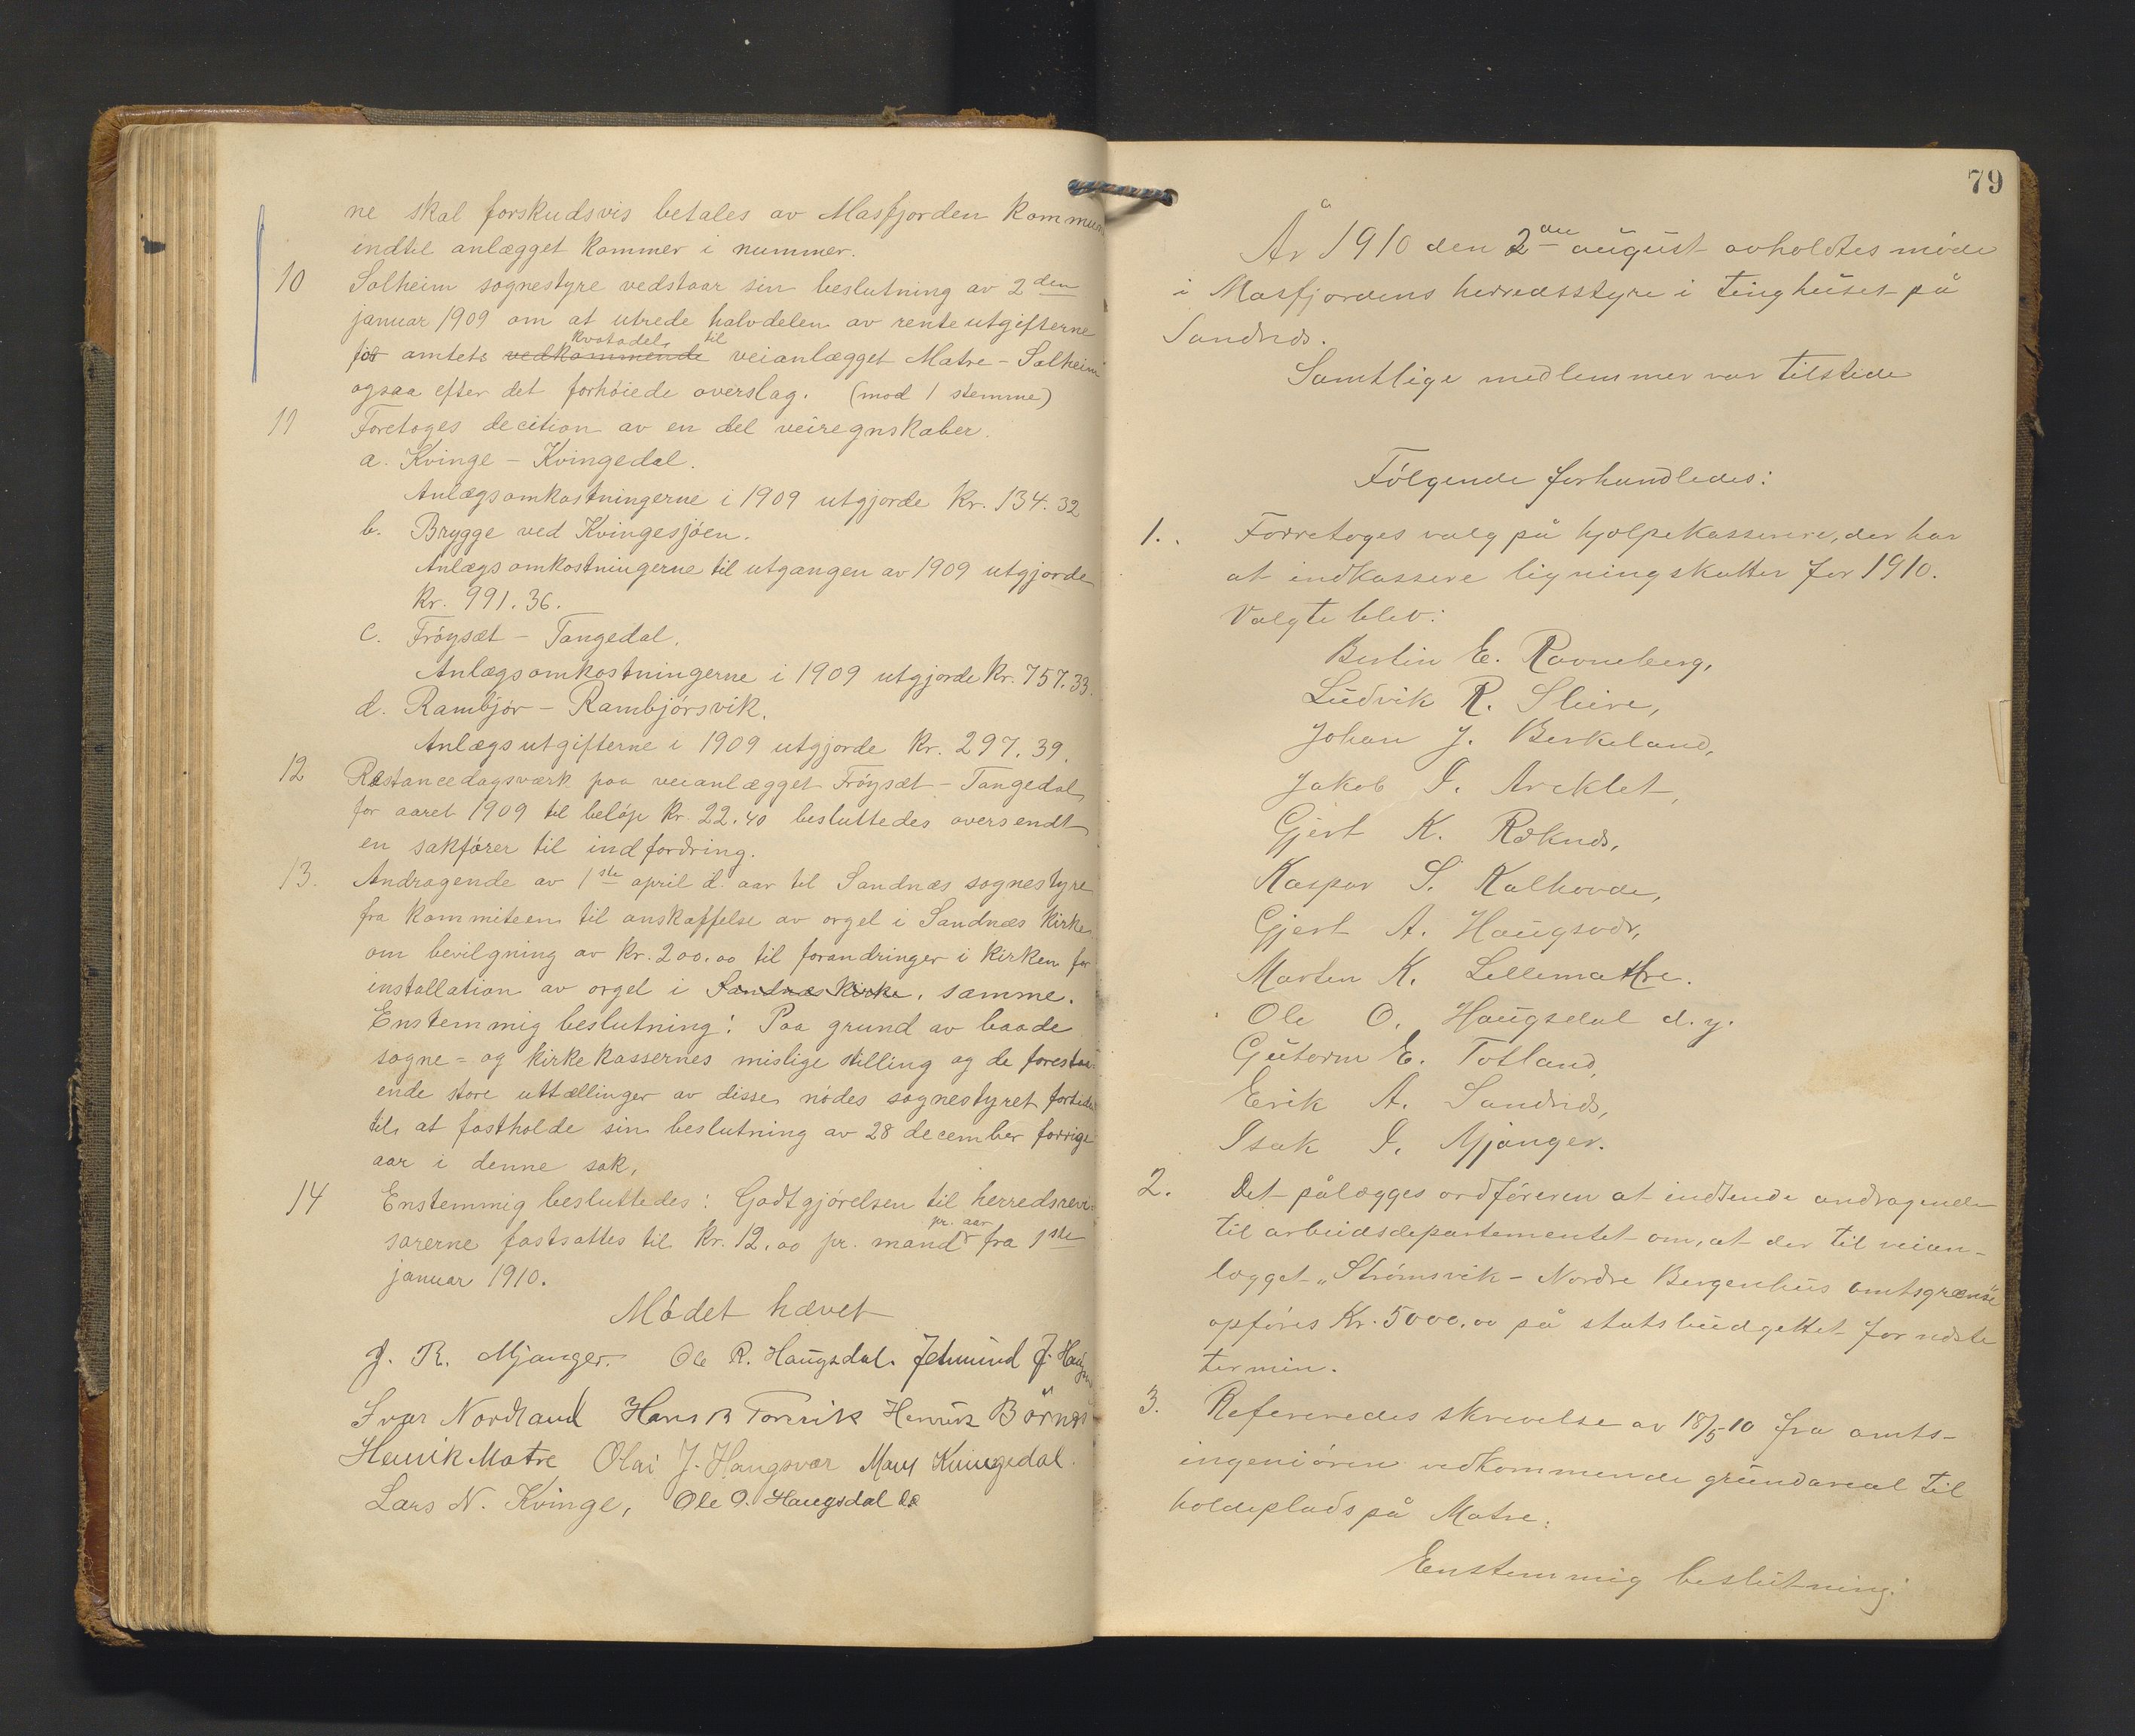 ne skal forskudsvis betales av Masfjorden kommune
indtil anlægget kommer i nummer.
10 Solheim sognestyre vedstaar sin beslutning av 2den
januar 1909 om at utrede halvdelen av renteutgifterne
for amtets vedkommende kvotadel til veianlægget Matre - Solheim
ogsaa efter det forhöiede overslag. (mod 1 stemme)
11 Foretoges decition av en del veiregnskaber.
a. Kvinge - Kvingedal.
Anlægsomkostningerne i 1909 utgjorde Kr. 134.32
b. Brygge ved Kvingesjöen.
Anlægsomkostningerne til utgangen av 1909 utgjorde
Kr. 991.36.
c. Fröysæt - Tangedal.
Anlægsomkostningerne i 1909 utgjorde Kr. 757.33.
d. Rambjör - Rambjörsvik.
Anlægsutgifterne i 1909 utgjorde Kr. 297.39.
12 Restancedagsværk paa veianlægget Fröysæt - Tangedal
for aaret 1909 til belöp Kr. 22.40 besluttedes oversendt
en sakförer til indfordring.
13. Andragende av 1ste april d. aar til Sandnæs sognestyre
fra kommiteen til anskaffelse av orgel i Sandnæs kirke
om bevilgning av Kr. 200.00 til forandringer i kirken for
installation av orgel i Sandnæs kirke. samme.
Enstemmig beslutning: Paa grund av baade
sogne- og kirkekassernes mislige stilling og de forestaa-
ende store uttællinger av disse nödes sognestyret fortide
til at fastholde sin beslutning av 28 december forrige
aar i denne sak.
14 Enstemmig besluttedes: Godtgjörelsen til herredsrevi-
sorerne fastsattes til Kr. 12.00 pr. mand pr. aar fra 1ste
januar 1910.
Mödet hævet
J. R. Mjanger. Ole R. Haugsdal. Jetmund J. Haugsvær
Ivar Nordland Hans B Henrik Börnes
Henrik Matre Olai J. Haugsvær Mons Kvingedal.
Lars N. Kvinge, Ole O. Haugsdal
79
År 1910 den 2den august avholdtes möde
i Masfjordens herredsstyre i tinghuset på
Sandnes.
Samtlige medlemmer var tilstede
Fölgende forhandledes:
1. Forretoges valg på hjelpekasserere, der har
at indkassere ligningskatter for 1910.
Valgte blev:
Bertin E. Ravneberg,
Ludvik R. Sleire,
Johan J. Berkeland,
Jakob I. Areklet,
Gjert K. Røknes,
Kaspar S. Kalhovde,
Gjert A. Haugsvær,
Marten K. Lellemattre.
Ole O. Haugsdal d.y.
Guttorm E. Totland,
Erik A. Sandnes,
Isak I. Mjanger.
2. Det pålægges ordföreren at indsende andragende
til arbeidsdepartementet om, at der til veian-
lægget „Strömsvik - Nordre Bergenhus amtsgrænse"
opföres Kr. 5000.00 på statsbudgettet for neste
termin.
3. Refereredes skrivelse av 18/5 10 fra amts-
ingeniören vedkommende grundareal til
holdeplads på Matre.
Enstemmig beslutning: